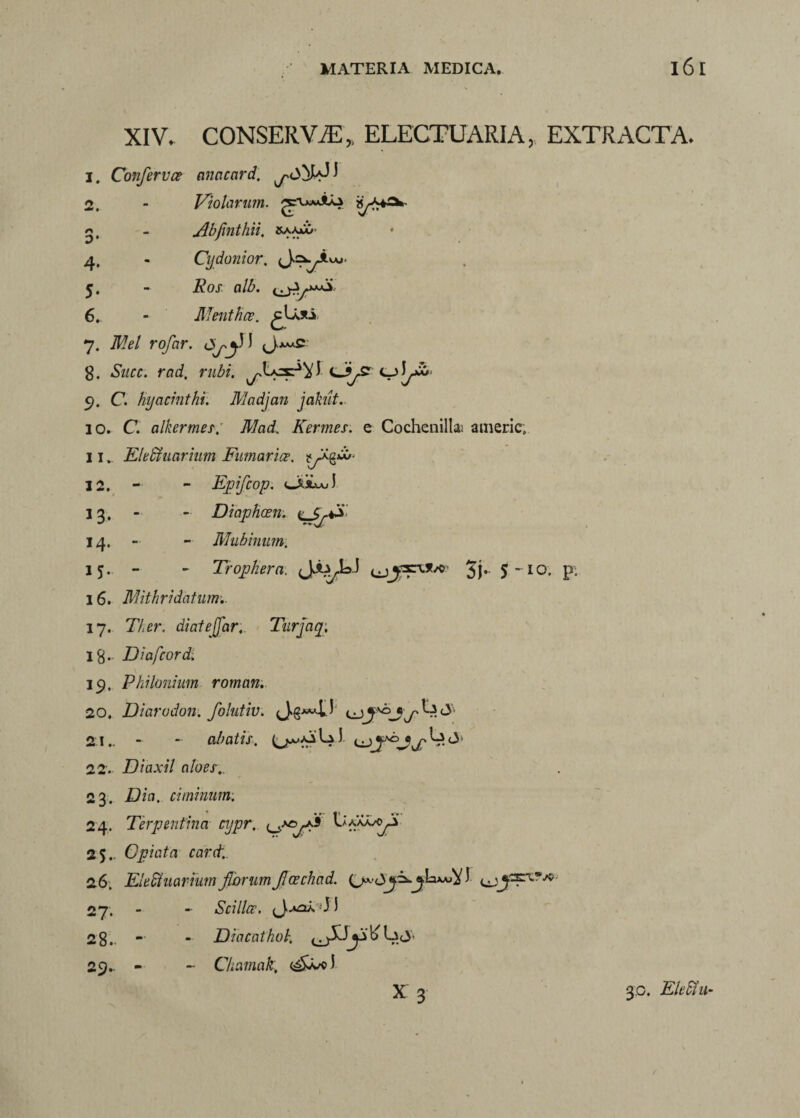 MATERIA MEDICA. 161
XIV. CONSERVÆ, ELECTUARIA, EXTRACTA.
1. Conservæ anacard.
2. - Violarum. بنفسج
3. - Absinthii. شيبه
4. - Cydonior. سفرجل
5. - Ros. alb.
6. - Menthæ. نعناع
7. Mel rosar. عسل الورد
8. Succ. rad. rubi. شراب عرق
9. C. hyacinthi. Madjan jakút.
10. C. alkermes. Mad. Kermes. e Cochenilla americ.
11. Electuarium Fumariæ.
12. - - Episcop.
13. - - Diaphœn. تمري
14. - - Mubinum.
15. - - Trophera. معجون ʒj. 5-10. p.
16. Mithridatum.
17. Ther. diatessar. Turjaq.
18. Diascord.
19. Philonium roman.
20. Diarodon. solutiv.
21. - - abatis.
22. Diaxil aloes.
23. Dia. ciminum.
24. Terpentina cypr.
25. Opiata card.
26. Electuarium florum stœchad. معجون
27. - - Scillæ.
28. - - Diacathol.
29. - - Chamak.
X 3
30. Electu-